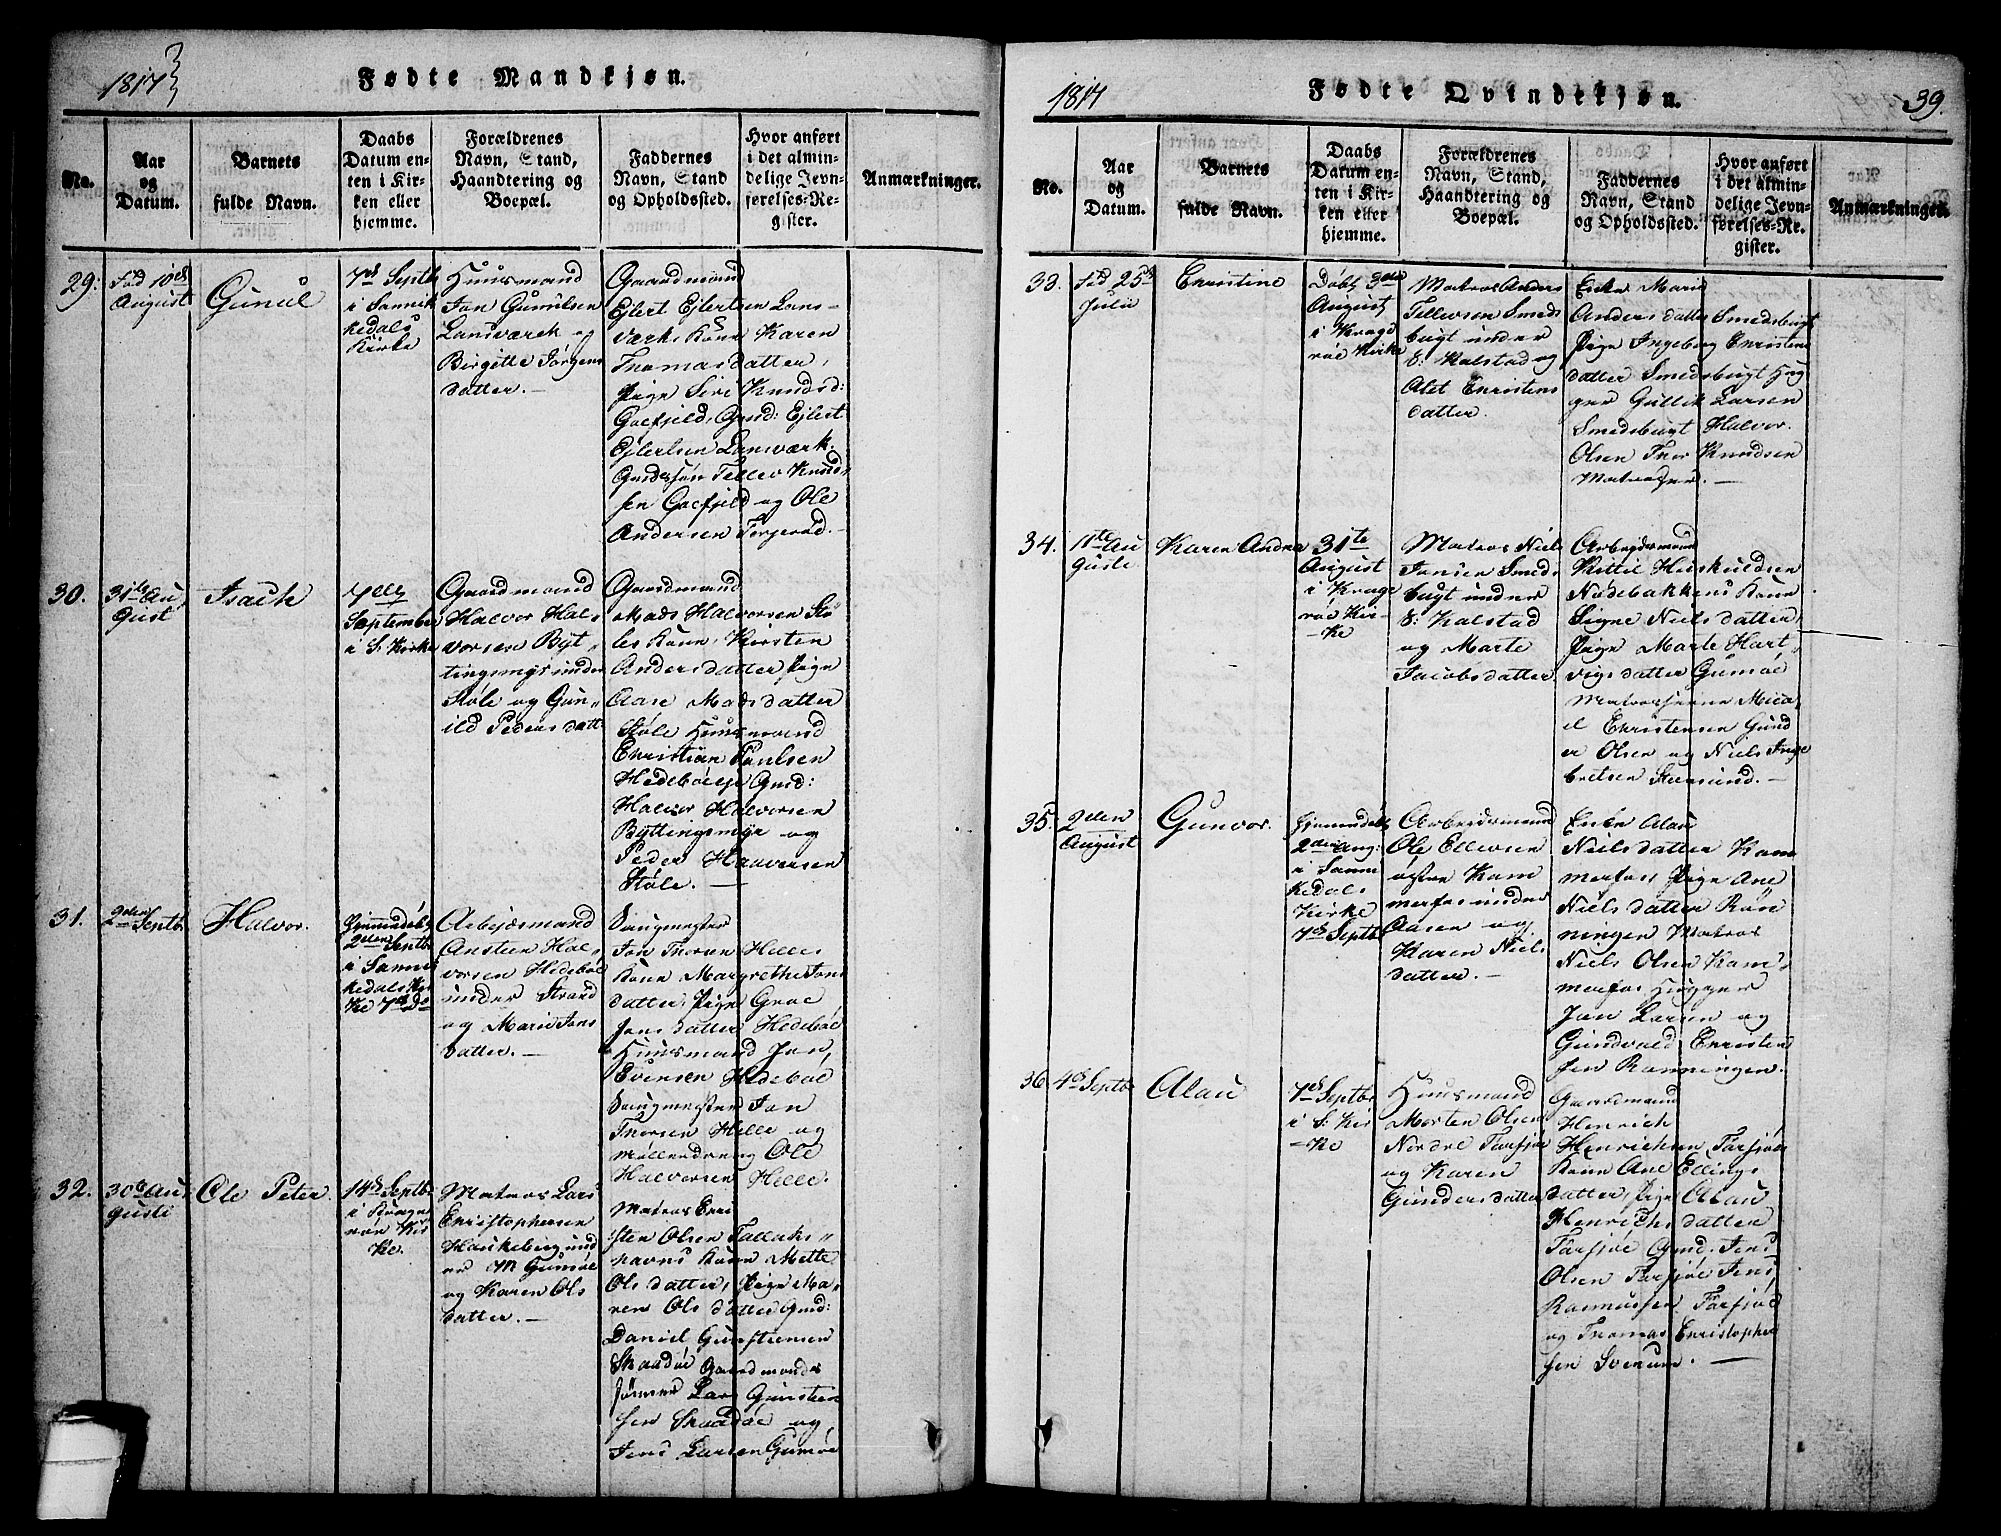 1817
Fødte Mandkjøn.
No.
Aar
og
Datum.
Barnets
fulde Navn.
Daabs
Datum en-
ten i Kir-
ken eller
hjemme.
Forældrenes
Navn, Stand,
Haandtering og
Boepæl.
Faddernes
Navn, Stand
og Opholdssted.
Hvor anført
i det almin-
delige Jevn-
førelses-Re-
gister.
Anmærkninger.
29.
Fød 10de
August
Gunul
7de Septb
i Sannik
kedals
Kirke
Huusmand
Jon Gunulsen
Lansværk og
Birgitte Jørgens
datter. —
Gaardmand
Ejlert Ejlertsen Lans-
værks Kone Karen
Thomasdatter,
Pige Siri Knudsd:
Goefjeld, Gmd: Ejlert
Ejlertsen Lansværk.
Gmdssøn Tellev Knud-
sen Goefjeld og Ole
Andersen Torgerød. —
30.
31te Au
gust
Isach
7de
September
i S: Kirke
Gaardmand
Halvor Hal-
vorsen Byt-
tingsmyr under
Støle og Gun-
ild Pedersdatt
Gaardmand
Mads Halvorsen Stø-
les Kone, Kirsten
Andersdatter Pige
Aase Madsdatter
Støle Huusmand
Christian Poulsen
Hedebøeje Gmd:
Halvor Halvorsen
Byttingsmyr og
Peder Haaversen
Støle. —
31.
2den Septb
Halvor.
Hjemmedøbt
2den Septb
i Sannik
kedals Kir
ke 7de Do
Arbejdsmand
Ansteen Hal-
vorsen Hedebøe
under Strand
og Marie Jons
datter. —
Saugmester
Jon Thorsen Helles
Kone Margrethe Jons
datter, Pige Groe
Jonsdatter Hedebøe
Huusmand Jon
Evensen Hedebøe
Saugmester Jon
Thorsen Helle og
Mølledreng Ole
Halvorsen Helle.
32.
30te Au
gusti
Ole Peter
14de Septb
i Krage
røe Kir
ke.
Matros Lars
Christophersen
Haukeberg und
er M Gumøe
og Karen Ols
datter. —
Matros Chri
sten Olsen Tallaks-
havns Kone Mette
Olsdatter, Pige Ma-
ren Olsdatter Gmd:
Daniel Gunsteensen
Skaadøe Gaardmands
sønner Lars Gunsteen
sen Skaadøe og
Jens Larsen Gumøe
1817
Fødte Qvindekjøn.
39.
No.
Aar
og
Datum.
Barnets
fulde Navn.
Daabs
Datum en-
ten i Kir-
ken eller
hjemme.
Forældrenes
Navn, Stand,
Haandtering og
Boepæl.
Faddernes
Navn, Stand
og Opholdssted.
Hvor anført
i det almin-
delige Jevn-
førelses-Re-
gister.
Anmærkninger.
33.
Fød 25de
Julii
Christine
Døbt 3die
August
i Krage
røe Kirke
Matros Anders
Tellevsen Smeds
bugt under
S: Kalstad og
Alet Christens
datter.
Enke Marie
Andersdatter Smedsbugt
Pige Ingeborg Christens
datter Smedsbugt Hug
ger Gullik Larsen
Smedsbugt Halvor
Olsen Thor Knudsen
Matroser. —
34.
11te Au
gusti
Karen Andrea
31te
August
i Krage
røe Kir
ke
Matros Niels
Jansen Smeds
bugt under
S: Kalstad
og Marte
Jacobsdatter
Arbejdsmand
Kittil Herskuldsen
Nødebakkens Kone
Signe Nielsdatter,
Pige Marte Hart-
vigsdatter Gumøe
Matroserne Mica
el Christensen Gund
er Olsen og Niels Inge
bretsen Steensund. —
35.
2den
August
Gunvor.
Hjemmedøbt
2den Aug:
i Sanni
kedals
Kirke
7de Septb
Arbeidsmand
Ole Ellevsen
østre Kam
merfos under
Aasen og
Karen Niels
datter. —
Enke Alau
Nielsdatter Kam
merfos Pige Ane
Nielsdatter Røn
ningen Matros
Niels Olsen Kam-
merfos Hugger
Jon Larsen og
Gundvald Christen
sen Rønningen.
36
4de Septb
Alau
7de Septb
i S: Kir
ke
Huusmand
Morten Olsen
Nordre Tarsjøe
og Karen
Gundersdatter
Gaardmand
Henrich
Henrichsen Tarsjøes
Kone Ane Ellings
datter, Pige Alau
Henrichsdatter
Tarsjøe Gmd: Jens
Olsen Tarsjøe Jens
Rasmussen Tarsjøe
og Thomas Christopher
sen Sverum. —